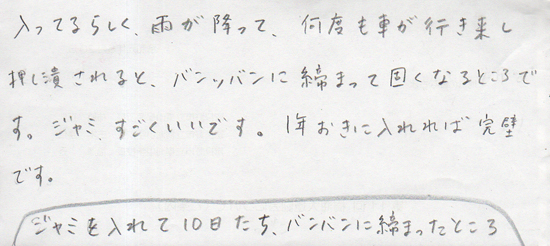 入ってるらしく、雨が降って、何度も車が行き来し
押し潰されると、バンッバンに締まって固くなるところで
す。ジャミ、すごくいいです。1年おきに入れれば完璧
です。
ジャミを入れて10日たち、バンバンに締まったところ